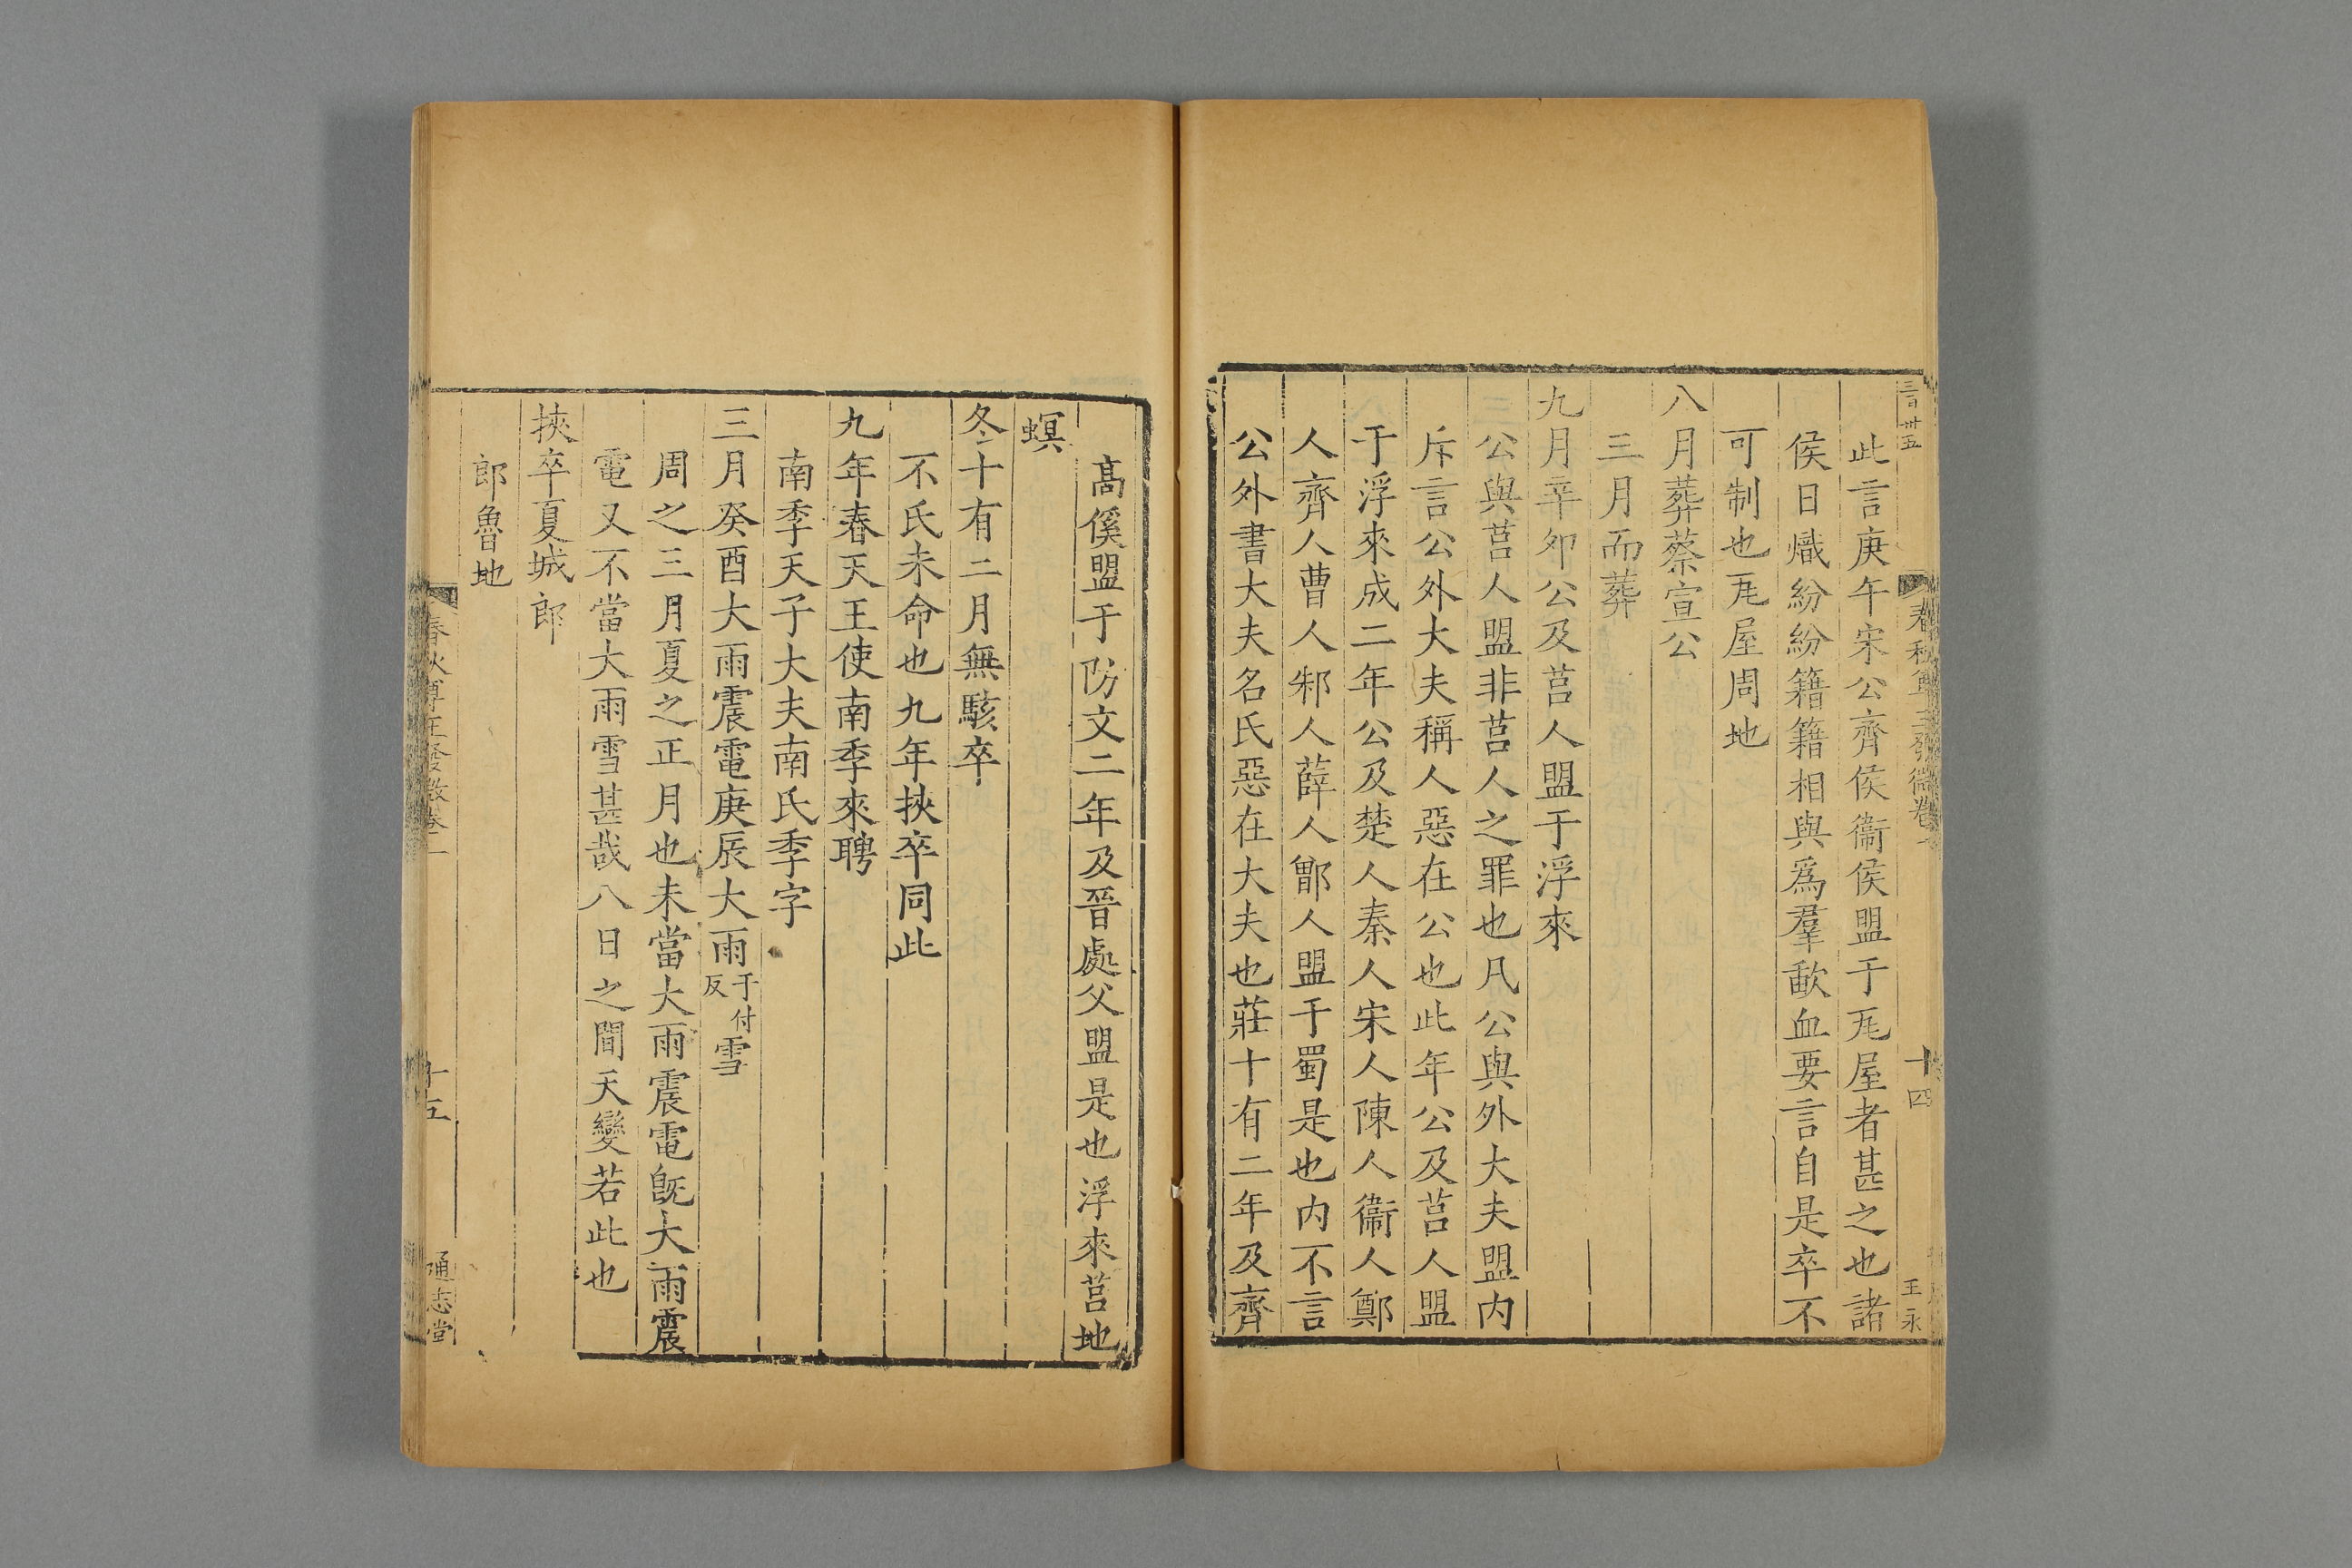 三百卅五
春秋尊王發微卷一
十四
王永
此言庚午宋公齊侯衞侯盟于瓦屋者甚之也諸
侯日熾紛紛籍籍相與爲羣歃血要言自是卒不
可制也瓦屋周地
八月葬蔡宣公
三月而葬
九月辛夘公及莒人盟于浮來
公與莒人盟非莒人之罪也凡公與外大夫盟内
斥言公外大夫稱人惡在公也此年公及莒人盟
于浮來成二年公及楚人秦人宋人陳人衞人鄭
人齊人曹人邾人薛人鄫人盟于蜀是也内不言
公外書大夫名氏惡在大夫也莊十有二年及齊
髙傒盟于防文二年及晉處父盟是也浮來莒地
螟
冬十有二月無駭卒
不氏未命也九年挾卒同此
九年春天王使南季來聘
南季天子大夫南氏季字
三月癸酉大雨震電庚辰大雨于付反雪
周之三月夏之正月也未當大雨震電旣大雨震
電又不當大雨雪甚哉八日之間天變若此也
挾卒夏城郎
郎魯地
春秋尊王發微卷一
十五
通志堂